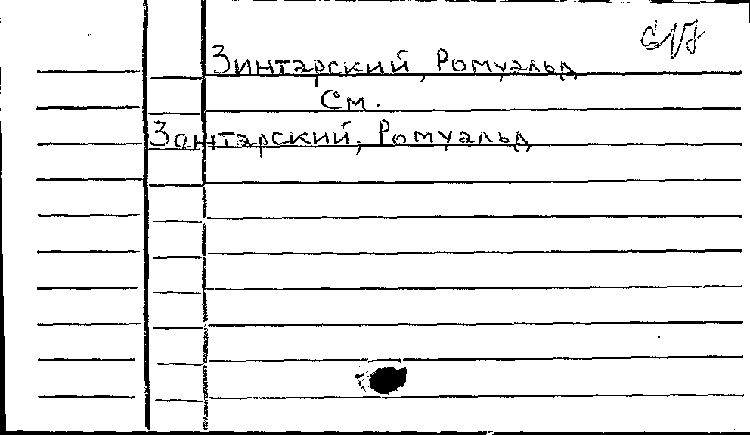 Зинтарский, Ромуальд
См.
Зантарский, Ромуальд